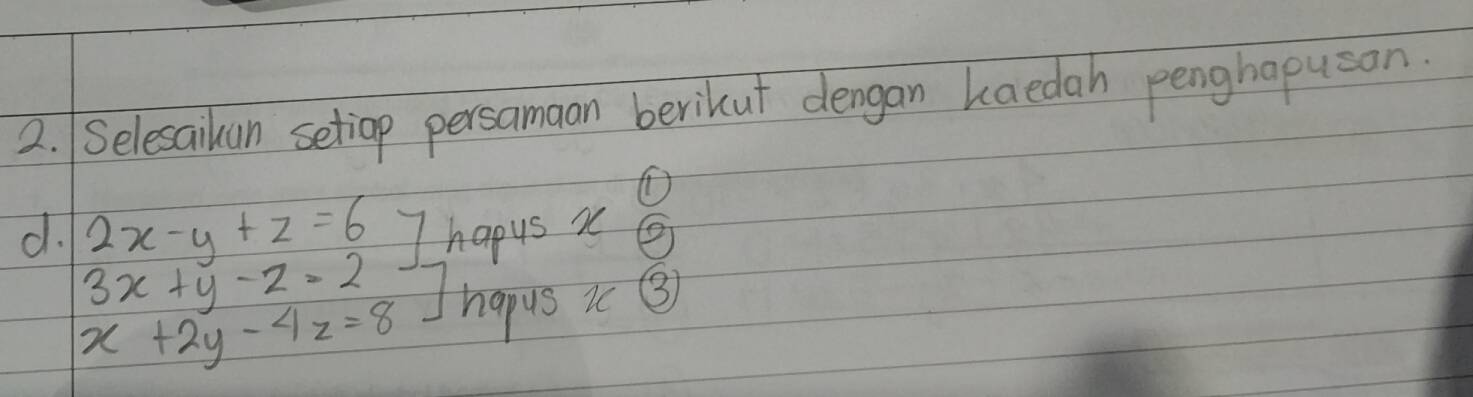 2. Selesaikan setiap persamaan berikut dengan kaedah penghapusan.
d. 2x - y + z = 6 ] hapus x ①
3x + y - z = 2 ②
x + 2y - 4z = 8 ] hapus x ③